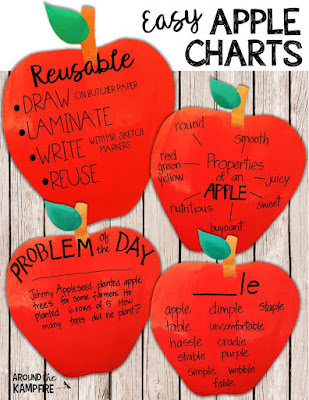 Easy APPLE
CHARTS
Reusable
•DRAW ON BUTCHER PAPER
•LAMINATE
•WRITE WITH MR. SKETCH MARKERS
•REUSE
round
smooth
red
green
yellow
Properties
of an
APPLE
juicy
sweet
nutritious
buoyant
PROBLEM of the DAY
Johnny Appleseed planted apple
trees for some farmers. He
planted 6 rows of 5. How
many trees did he plant?
___le
apple dimple staple
table uncomfortable
hassle cradle
stable purple
simple wobble
fable
AROUND the
KAMPFIRE